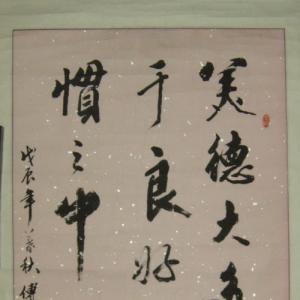 美德大多
于良好
慣之中
戊辰年暮秋傅